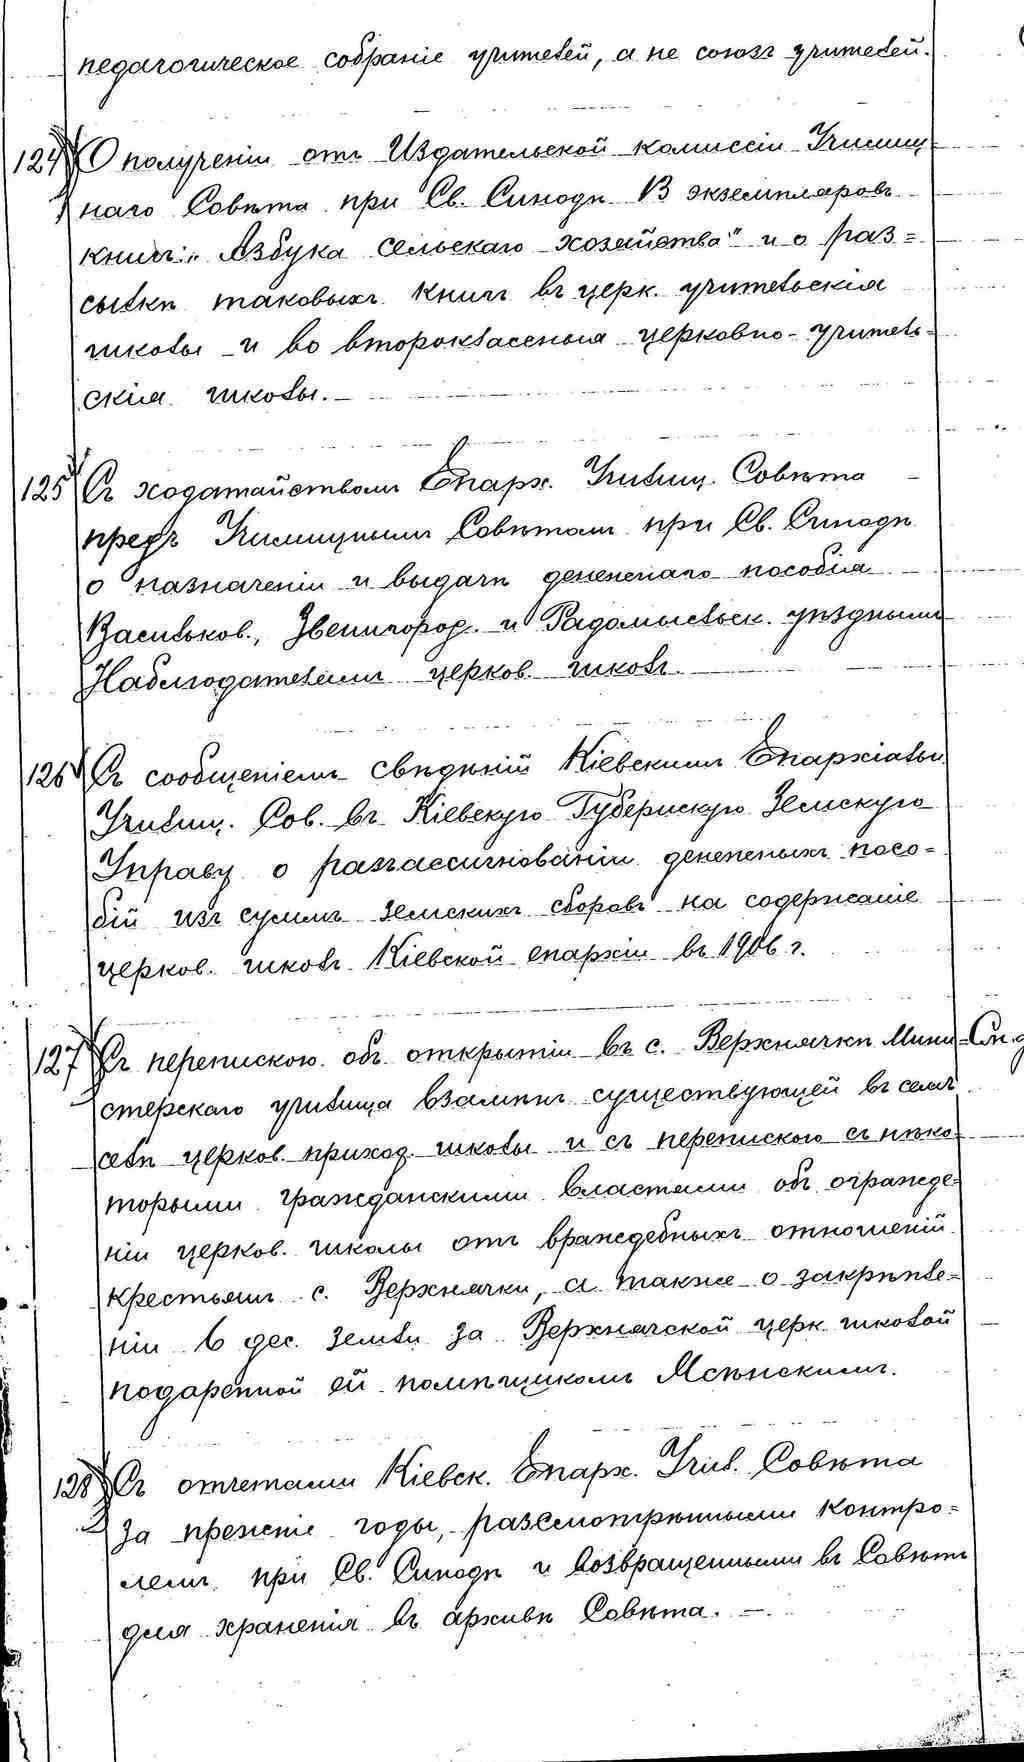 педагогическое собраніе учителей, а не союзъ учителей.
124 О полученіи отъ Издательской комиссіи Училищ-
наго Совѣта при Св. Синодѣ 13 экземпляровъ
книги: „Азбука сельскаго хозяйства" и о раз=
сылкѣ таковыхъ книгъ въ церк. учительскія
школы и во второклассныя церковно-учитель-
скія школы. –
125 Съ ходатайствомъ Епарх. Училищ. Совѣта
предъ Училищнымъ Совѣтомъ при Св. Синодѣ
о назначеніи и выдачѣ денежнаго пособія
Васильков., Звенигород. и Радомысльск. уѣзднымъ
Наблюдателямъ церков. школъ.
126 Съ сообщеніемъ свѣдѣній Кіевскимъ Епархіальн.
Училищ. Сов. въ Кіевскую Губернскую Земскую
Управу о разассигнованіи денежныхъ посо=
бій изъ суммъ земскихъ сборовъ на содержаніе
церков. школъ Кіевской епархіи въ 1906 г.
127 Съ перепискою объ открытіи въ с. Верхнячкѣ Мини-
стерскаго училища взамѣнъ существующей въ семъ
селѣ церков. приход. школы и съ перепискою съ нѣко-
торыми гражданскими властями объ огражде=
ніи церков. школы отъ враждебныхъ отношеній
крестьянъ с. Верхнячки, а также о закрѣпле=
ніи 6 дес. земли за Верхнячской церк. школой
подаренной ей помѣщикомъ
128 Съ отчетами Кіевск. Епарх. Учил. Совѣта
за прежніе годы, разсмотрѣнными Контро=
лемъ при Св. Синодѣ и возвращенными въ Совѣтъ
для храненія въ архивѣ Совѣта. –